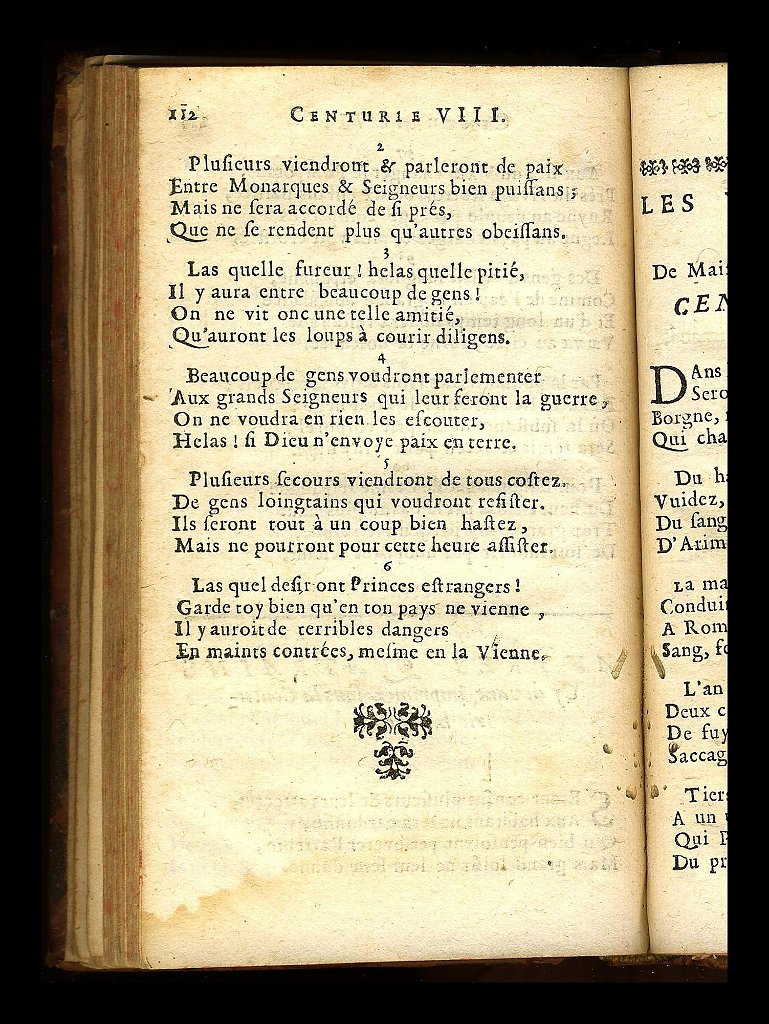 112 CENTURIE VIII.
2
Pluſieurs viendront & parleront de paix
Entre Monarques & Seigneurs bien puiſſans,
Mais ne ſera accordé de ſi prés,
Que ne ſe rendent plus qu'autres obeiſſans.
3
Las quelle fureur ! helas quelle pitié,
Il y aura entre beaucoup de gens !
On ne vit onc une telle amitié,
Qu'auront les loups à courir diligens.
4
Beaucoup de gens voudront parlementer
Aux grands Seigneurs qui leur feront la guerre,
On ne voudra en rien les eſcouter,
Helas ! ſi Dieu n'envoye paix en terre.
5
Pluſieurs ſecours viendront de tous coſtez.
De gens loingtains qui voudront reſiſter.
Ils ſeront tout à un coup bien haſtez,
Mais ne pourront pour cette heure aſſiſter.
6
Las quel deſir ont Princes eſtrangers !
Garde toy bien qu'en ton pays ne vienne,
Il y auroit de terribles dangers
En maints contrées, meſme en la Vienne.
LES
De Mai
CEN
DAns
Sero
Borgne,
Qui cha
Du h
Vuidez,
Du ſang
D'Arim
La ma
Condui
A Rom
Sang, fo
L'an
Deux c
De fuy
Saccag
Tier
A un
Qui P
Du pr